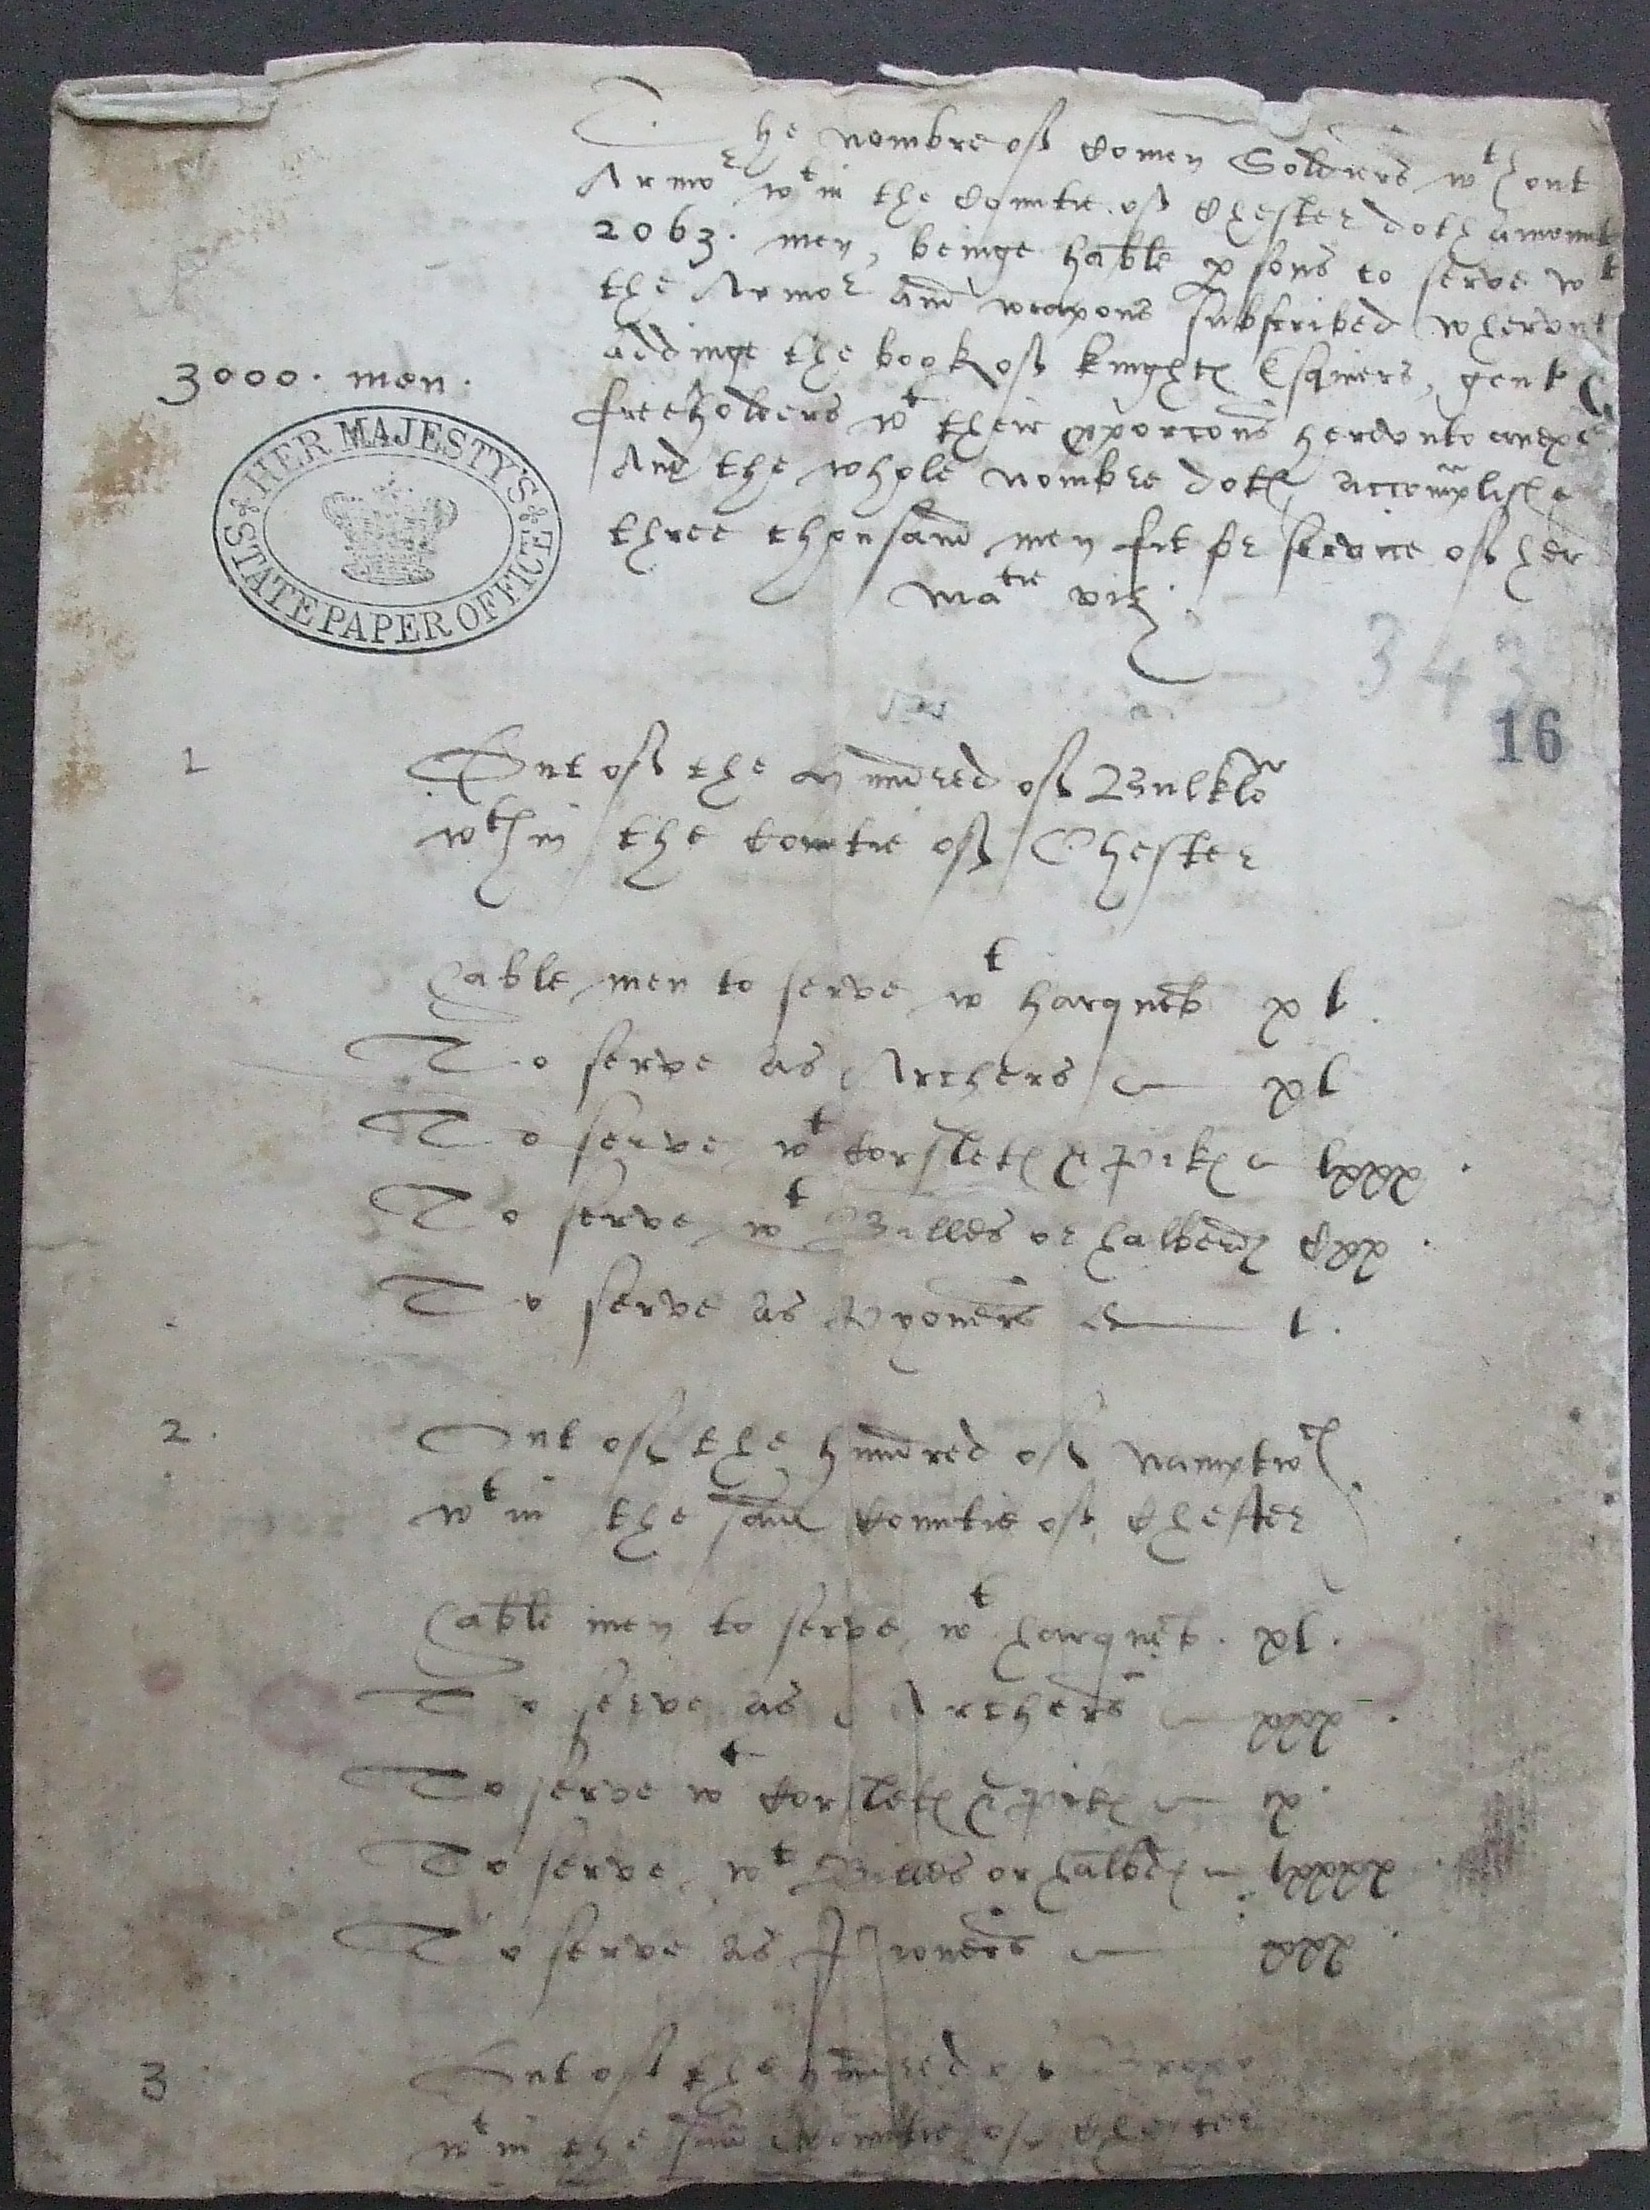 The nombre of Comen Soldiers wth out
Armor wt in the Countie of Chester doth amount
2063. men, beinge hable psons to serve wt
the Armor and weapons subscribed wherunt
addinge the book of knightes Esquiers, gent &
freeholders wt their pporcons herunto anexed
And the whole nombre doth accomplishe
three thousand men fit for service of her
Matie viz
3000. men.
HER MAJESTY'S STATE PAPER OFFICE
343
16
1
Out of the Hundred of Bulkle
wthin the Countie of Chester
hable men to serve wt harqueb xl.
To serve as Archers xl
To serve wt Corsletes & Pikes lxxx.
To serve wt Billes or halberdes Cxx.
To serve as Pyoners l.
2.
Out of the hundred of Namptwch
wt in the said Countie of Chester
hable men to serve wt harqueb. xl.
To serve as Archers xxx.
To serve wt Corsletes & Pikes x.
To serve wt Billes or halberdes lxxxx.
To serve as Pioners xxx.
3
Out of the hundred of
wt in the said Countie of Chester